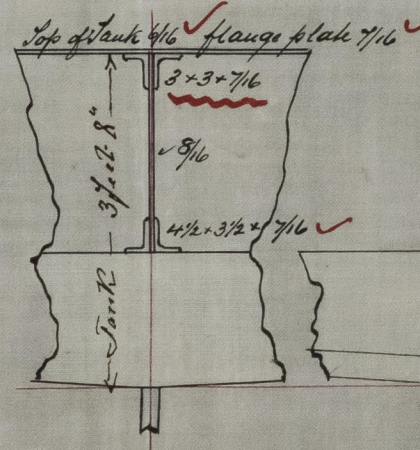 Top of Tank 6/16 flange plate 7/16
3 + 3 + 7/16
3 feet 8"
8/16
4 1/2 + 3 1/2 + 7/16
Tank